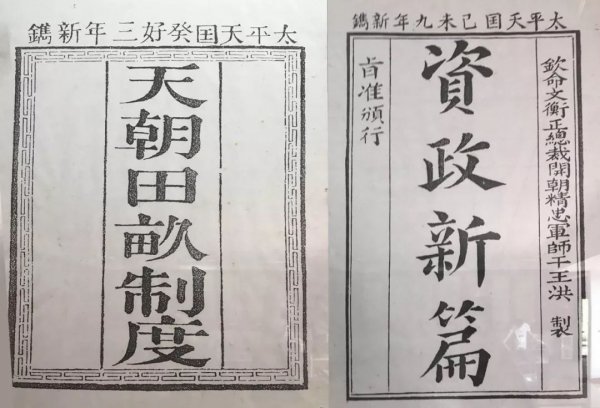 太平天囯癸好三年新鐫
天朝田畝制度
太平天囯己未九年新鐫
欽命文衡正總裁開朝精忠軍師干王洪 製
資政新篇
旨准頒行